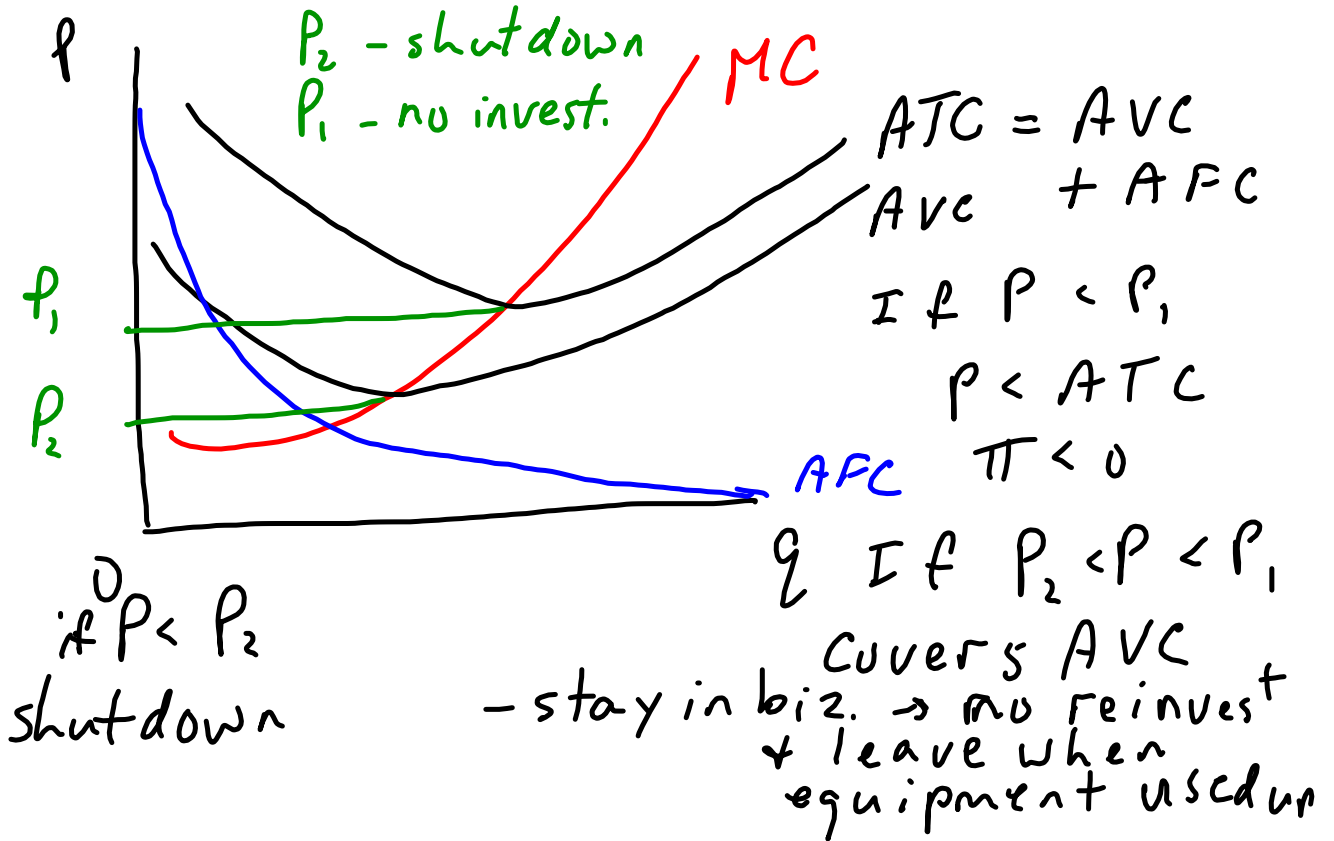 P
P₂ - shutdown
P₁ - no invest.
MC
ATC = AVC
+ AFC
AVC
P₁
P₂
If P < P₁
P < ATC
π < 0
AFC
q
0
If P₂ < P < P₁
Covers AVC
- stay in biz. → no reinvest
+ leave when
equipment used up
if P < P₂
shutdown